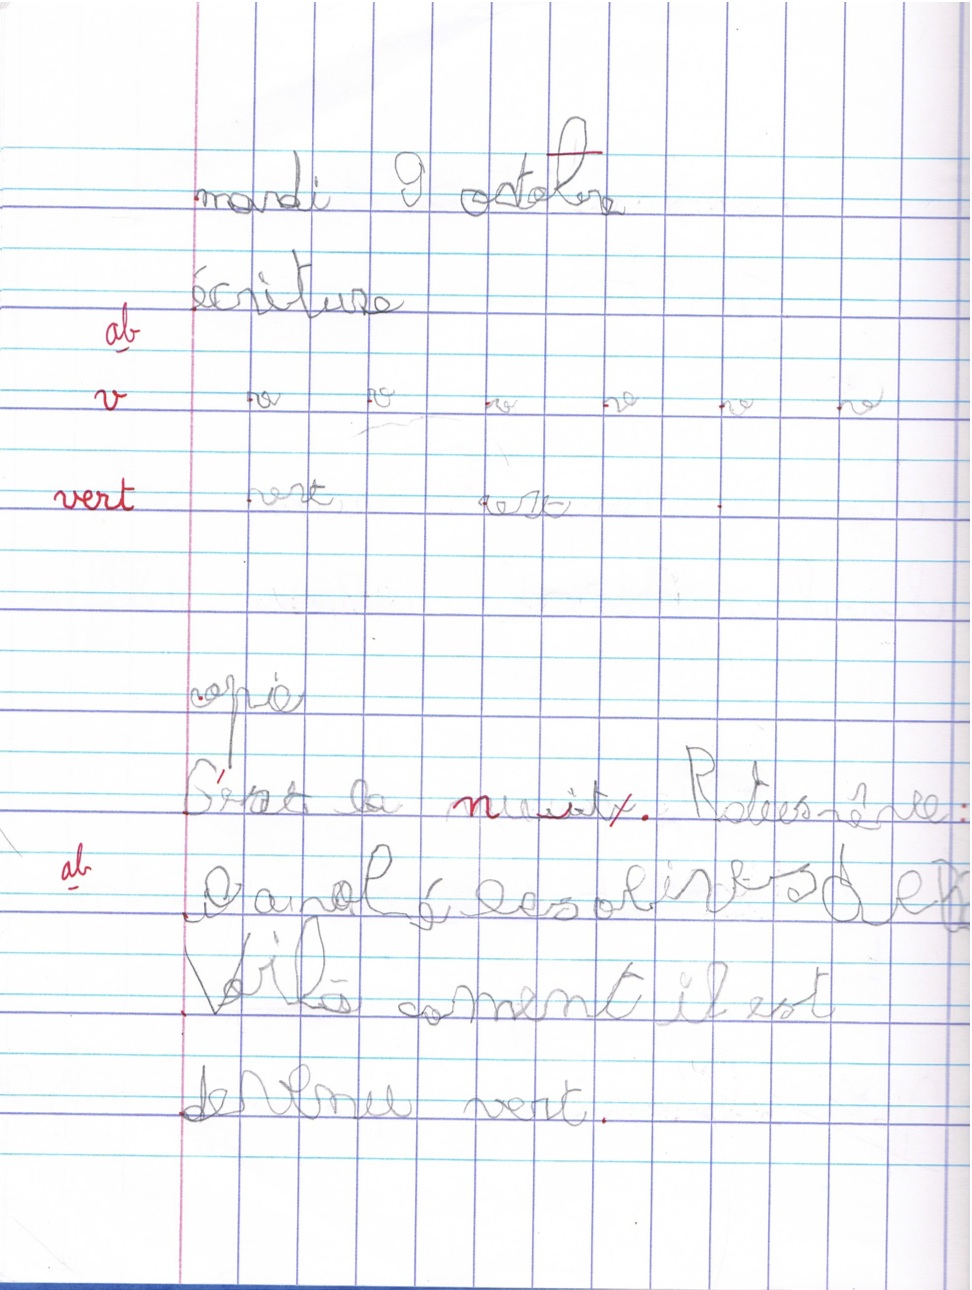 mardi 9 octobre
écriture
ab
v v v v v v v
vert vert vert
copie
C'est la nuit. :
ab
a volé les olives de
Voilà coment il est
devenu vert.